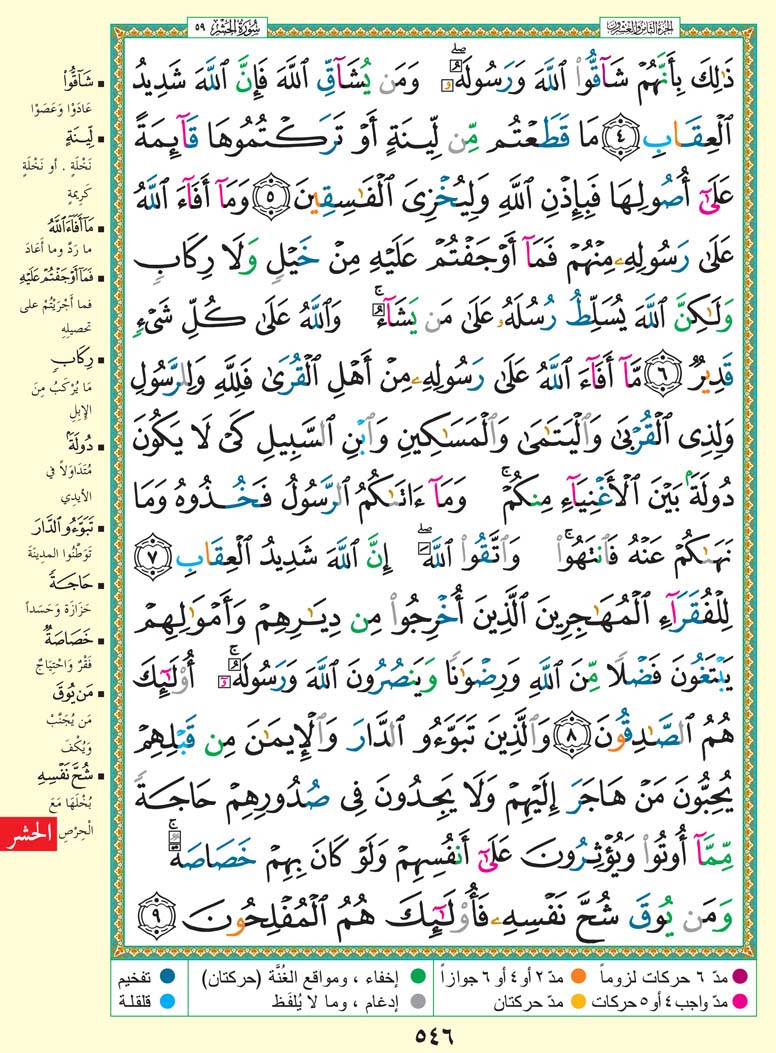 الجزء الثامن والعشرون
سورة الحشر ٥٩
ذَٰلِكَ بِأَنَّهُمْ شَآقُّوا۟ ٱللَّهَ وَرَسُولَهُۥ ۖ وَمَن يُشَآقِّ ٱللَّهَ فَإِنَّ ٱللَّهَ شَدِيدُ
ٱلْعِقَابِ ٤ مَا قَطَعْتُم مِّن لِّينَةٍ أَوْ تَرَكْتُمُوهَا قَآئِمَةً
عَلَىٰٓ أُصُولِهَا فَبِإِذْنِ ٱللَّهِ وَلِيُخْزِىَ ٱلْفَـٰسِقِينَ ٥ وَمَآ أَفَآءَ ٱللَّهُ
عَلَىٰ رَسُولِهِۦ مِنْهُمْ فَمَآ أَوْجَفْتُمْ عَلَيْهِ مِنْ خَيْلٍ وَلَا رِكَابٍ
وَلَـٰكِنَّ ٱللَّهَ يُسَلِّطُ رُسُلَهُۥ عَلَىٰ مَن يَشَآءُ ۚ وَٱللَّهُ عَلَىٰ كُلِّ شَىْءٍ
قَدِيرٌ ٦ مَّآ أَفَآءَ ٱللَّهُ عَلَىٰ رَسُولِهِۦ مِنْ أَهْلِ ٱلْقُرَىٰ فَلِلَّهِ وَلِلرَّسُولِ
وَلِذِى ٱلْقُرْبَىٰ وَٱلْيَتَـٰمَىٰ وَٱلْمَسَـٰكِينِ وَٱبْنِ ٱلسَّبِيلِ كَىْ لَا يَكُونَ
دُولَةًۢ بَيْنَ ٱلْأَغْنِيَآءِ مِنكُمْ ۚ وَمَآ ءَاتَىٰكُمُ ٱلرَّسُولُ فَخُذُوهُ وَمَا
نَهَىٰكُمْ عَنْهُ فَٱنتَهُوا۟ ۚ وَٱتَّقُوا۟ ٱللَّهَ ۖ إِنَّ ٱللَّهَ شَدِيدُ ٱلْعِقَابِ ٧
لِلْفُقَرَآءِ ٱلْمُهَـٰجِرِينَ ٱلَّذِينَ أُخْرِجُوا۟ مِن دِيَـٰرِهِمْ وَأَمْوَٰلِهِمْ
يَبْتَغُونَ فَضْلًا مِّنَ ٱللَّهِ وَرِضْوَٰنًا وَيَنصُرُونَ ٱللَّهَ وَرَسُولَهُۥٓ ۚ أُو۟لَـٰٓئِكَ
هُمُ ٱلصَّـٰدِقُونَ ٨ وَٱلَّذِينَ تَبَوَّءُو ٱلدَّارَ وَٱلْإِيمَـٰنَ مِن قَبْلِهِمْ
يُحِبُّونَ مَنْ هَاجَرَ إِلَيْهِمْ وَلَا يَجِدُونَ فِى صُدُورِهِمْ حَاجَةً
مِّمَّآ أُوتُوا۟ وَيُؤْثِرُونَ عَلَىٰٓ أَنفُسِهِمْ وَلَوْ كَانَ بِهِمْ خَصَاصَةٌ ۚ
وَمَن يُوقَ شُحَّ نَفْسِهِۦ فَأُو۟لَـٰٓئِكَ هُمُ ٱلْمُفْلِحُونَ ٩
▪ شَآقُّوا۟
عَادَوْا وَعَصَوْا
▪ لِّينَةٍ
نَخْلَةٍ . أو نَخْلَةٍ
كَرِيمةٍ
▪ مَآ أَفَآءَ ٱللَّهُ
ما رَدَّ وما أعَادَ
▪ فَمَآ أَوْجَفْتُمْ عَلَيْهِ
فما أجْرَيْتُمْ على
تحصيلِهِ
▪ رِكَابٍ
مَا يُرْكَبُ مِنَ
الإبِلِ
▪ دُولَةًۢ
مُتَدَاوَلاً في
الأيدي
▪ تَبَوَّءُو ٱلدَّارَ
تَوَطَّنُوا المدِينَةَ
▪ حَاجَةً
حَزَازَة وَحَسَداً
▪ خَصَاصَةٌ
فَقْرٌ وَاحْتِيَاجٌ
▪ مَن يُوقَ
مَن يُجَنَّبْ
وَيُكْفَ
▪ شُحَّ نَفْسِهِ
بُخْلَهَا مَعَ
الْحِرْصِ
الحشر
مدّ ٦ حركات لزوماً مدّ ٢ أو ٤ أو ٦ جوازاً إخفاء ، ومواقع الغُنَّة (حركتان) تفخيم
مدّ واجب ٤ أو ٥ حركات مدّ حركتان إدغام ، وما لا يُلفَظ قلقلة
٥٤٦